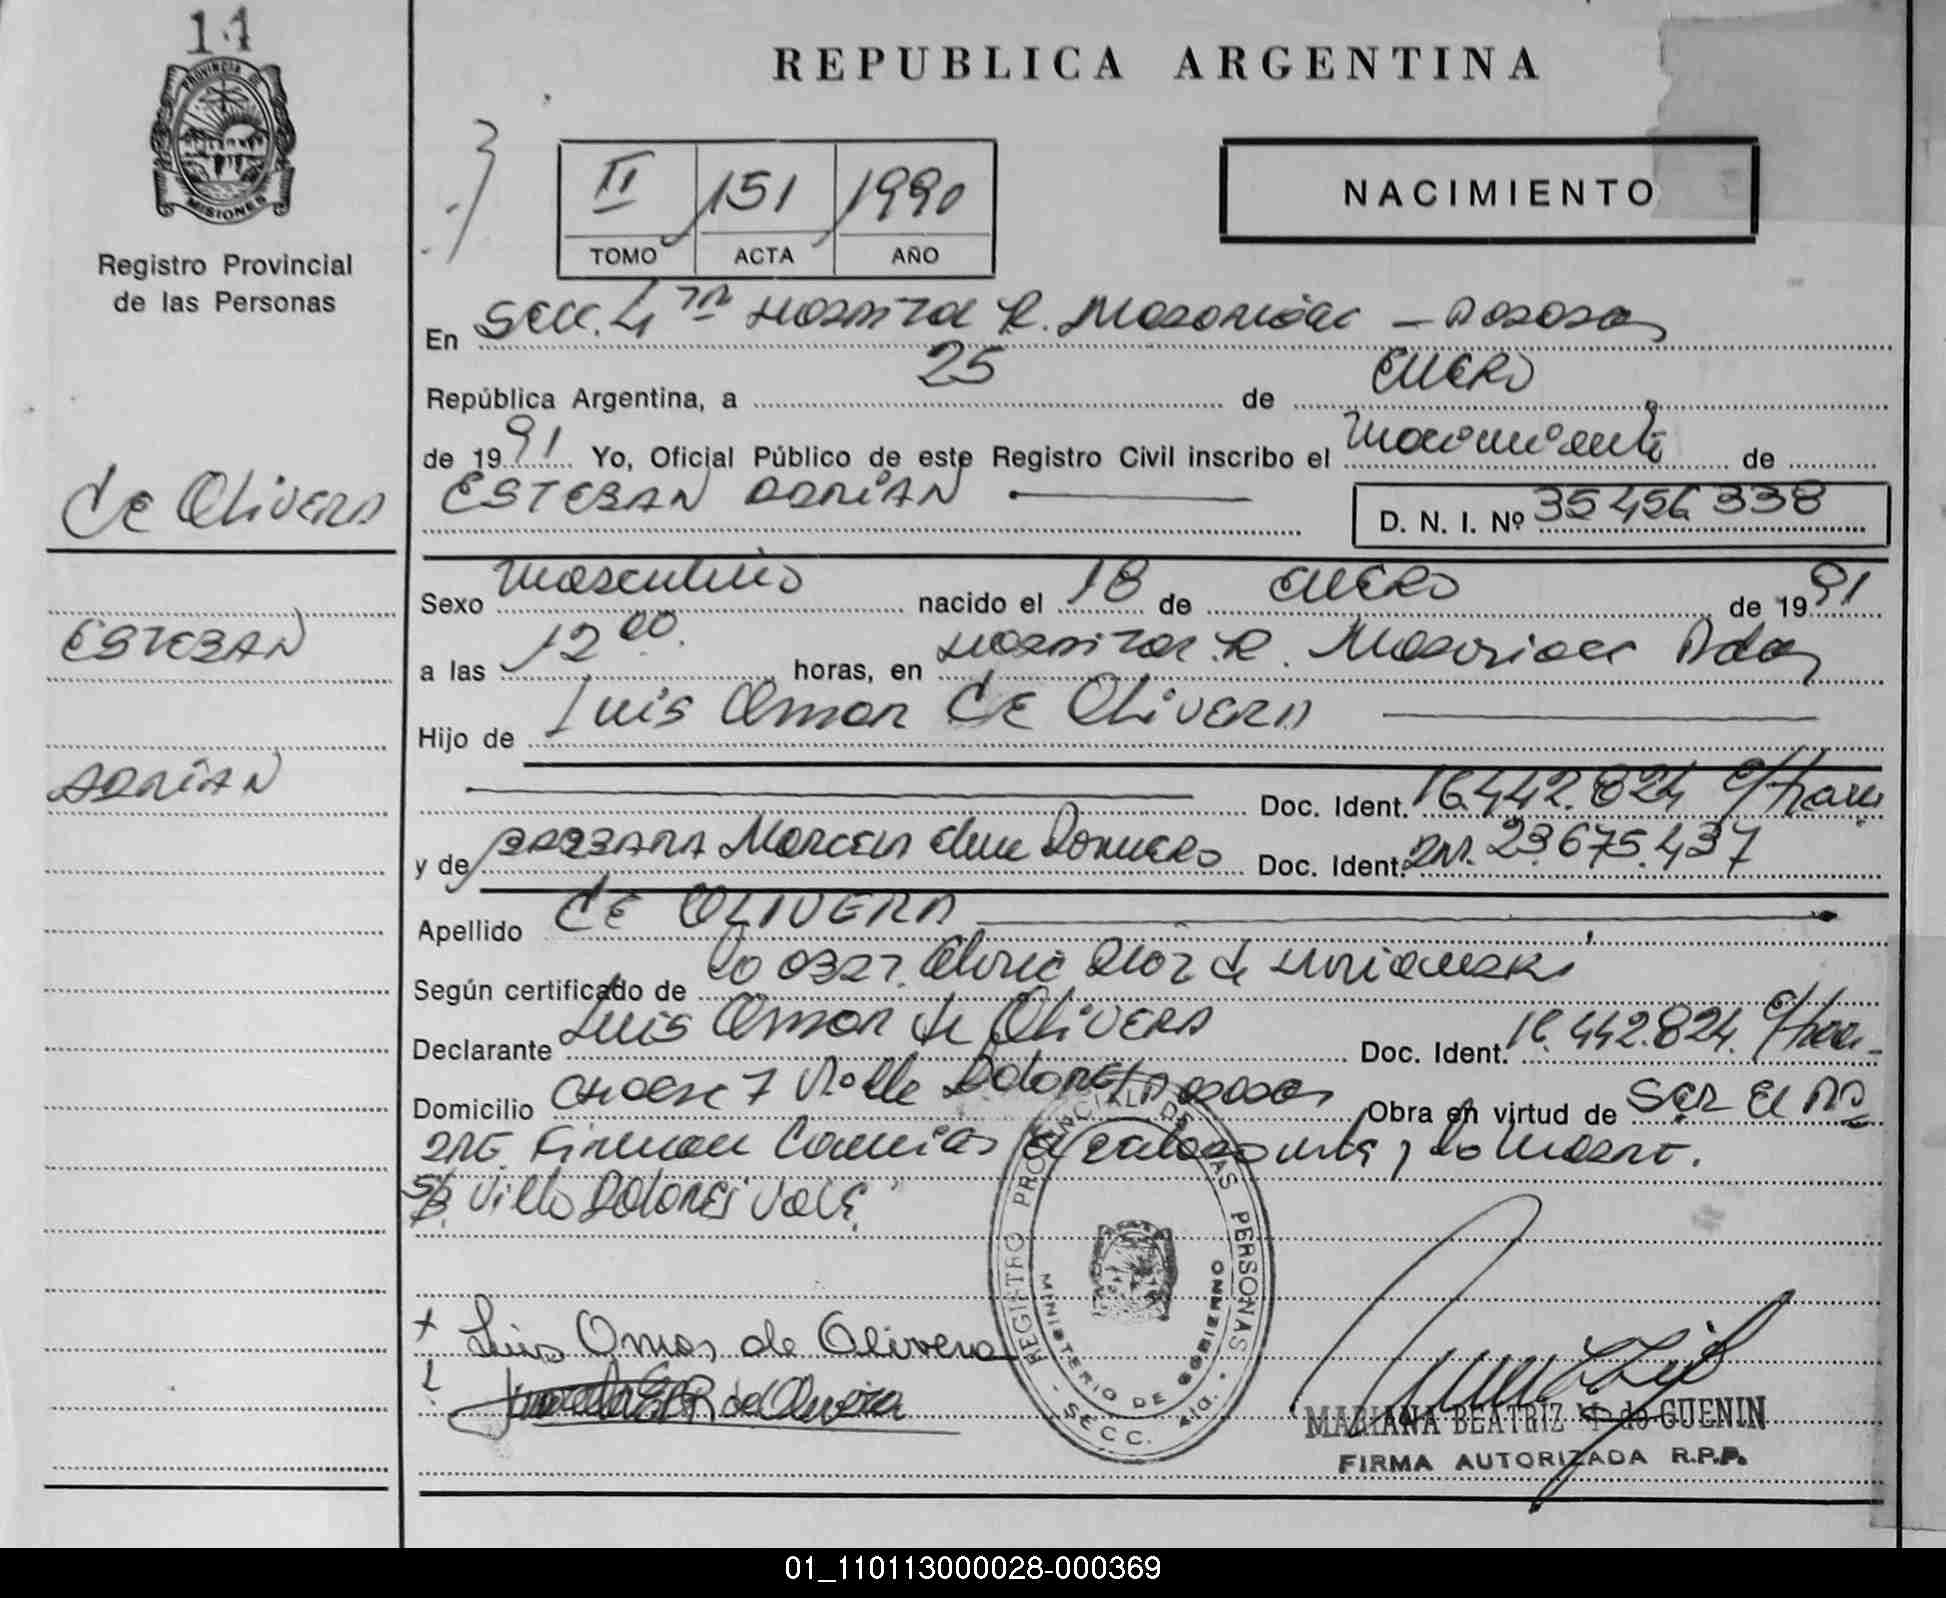 14
PROVINCIA DE
MISIONES
Registro Provincial
de las Personas
REPUBLICA ARGENTINA
II 151 1990
TOMO ACTA AÑO
NACIMIENTO
En Secc. 4ta Hospital R. Madariaga - Posadas
República Argentina, a 25 de ENERO
de 1991 Yo, Oficial Público de este Registro Civil inscribo el nacimiento de
ESTEBAN ADRIÁN
D. N. I. Nº 35456338
de Olivera
ESTEBAN
ADRIÁN
Sexo masculino nacido el 18 de ENERO de 1991
a las 12 00 horas, en Hospital R. Madariaga Pdas
Hijo de Luis Omar de Olivera
Doc. Ident. 16.442.824
y de BARBARA Marcela Romero Doc. Ident. 23.675.437
Apellido de OLIVERA
Según certificado de 0327
Declarante Luis Omar de Olivera Doc. Ident. 16.442.824.
Domicilio Chacra 7 Villa Dolores Posadas Obra en virtud de SER El PA
DRE. Firman la madre.
S/B. Villa Dolores Vale
Luis Omar de Olivera
REGISTRO PROVINCIAL DE LAS PERSONAS
MINISTERIO DE GOBIERNO
SECC. 4ta.
MARIANA BEATRIZ de GUENIN
FIRMA AUTORIZADA R.P.P.
01_110113000028-000369